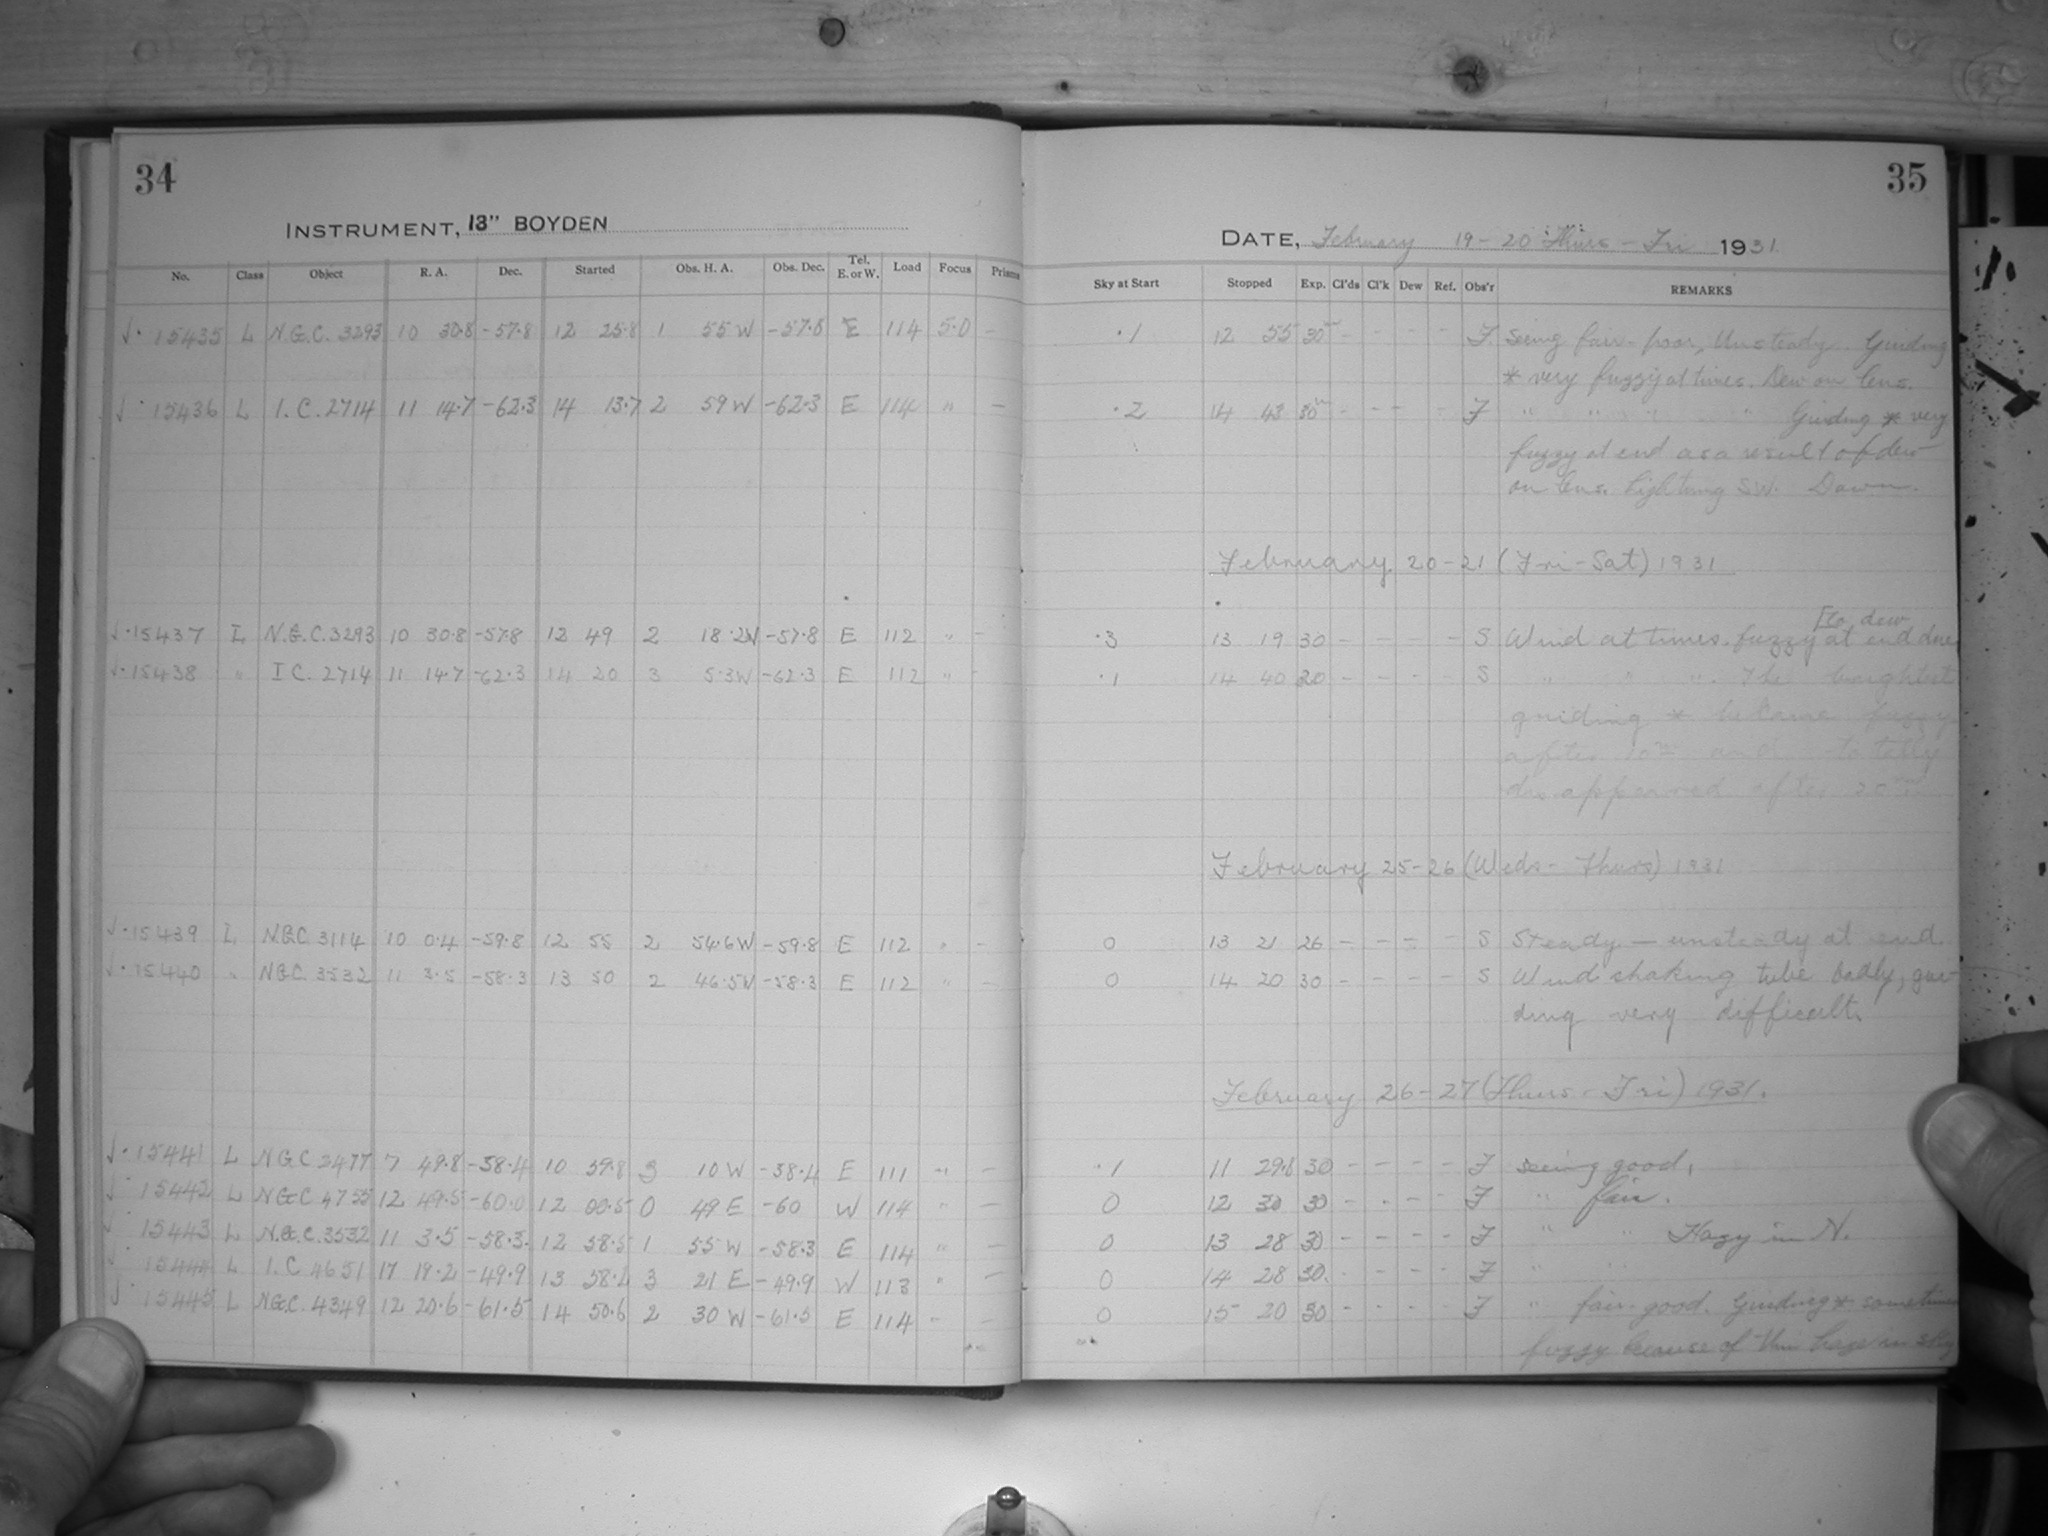 34
35
INSTRUMENT, 13" BOYDEN
DATE, February 19-20 Thurs-Fri 1931
No. Class Object R. A. Dec. Started Obs. H. A. Obs. Dec. Tel. E. or W. Load Focus Prisms Sky at Start Stopped Exp. Cl'ds Cl'k Dew Ref. Obs'r REMARKS
√· 15435 L N.G.C. 3293 10 30.8 -57.8 12 25.8 1 55 W -57.8 E 114 5.0 - .1 12 55 30m - - - - F. Seeing fair-poor, Unsteady. Guiding
* very fuzzy at times. Dew on lens.
√· 15436 L I.C. 2714 11 14.7 -62.3 14 13.7 2 59 W -62.3 E 114 " - .2 14 43 30m - - - - F " " " " Guiding * very
fuzzy at end as a result of dew
on lens. Lightning SW. Dawn.
February 20-21 (Fri-Sat) 1931
[to dew
√· 15437 L N.G.C. 3293 10 30.8 -57.8 12 49 2 18.2W -57.8 E 112 " - .3 13 19 30 - - - - S Wind at times. fuzzy at end due
√· 15438 " I C. 2714 11 14.7 -62.3 14 20 3 5.3W -62.3 E 112 " - .1 14 40 20 - - - - S " " ". The brightest
guiding * became fuzzy
after 10m and totally
disappeared after 20m
February 25-26 (Weds-Thurs) 1931
√· 15439 L N.G.C. 3114 10 0.4 -59.8 12 55 2 54.6W -59.8 E 112 " - 0 13 21 26 - - - - S Steady - unsteady at end.
√· 15440 " N.G.C. 3532 11 3.5 -58.3 13 50 2 46.5W -58.3 E 112 " - 0 14 20 30 - - - - S Wind shaking tube badly, gui-
ding very difficult.
February 26-27 (Thurs-Fri) 1931.
√· 15441 L N.G.C 7 49.8 -38.4 10 59.8 3 10 W -38.4 E 111 " - .1 11 29.8 30 - - - - F seeing good,
√ 15442 L N.G.C 4755 12 49.5 -60.0 12 00.5 0 49 E -60 W 114 " - 0 12 30 30 - - - - F " fair.
√ 15443 L N.G.C. 3532 11 3.5 -58.3. 12 58.5 1 55 W -58.3 E 114 " - 0 13 28 30 - - - - F " " Hazy in N.
√ 15444 L I.C 4651 17 19.2 -49.9 13 58.2 3 21 E -49.9 W 113 " - 0 14 28 30. - - - - F " "
√ 15445 L N.G.C. 4349 12 20.6 -61.5 14 50.6 2 30 W -61.5 E 114 " - 0 15 20 30 - - - - F " fair-good. Guiding * sometimes
fuzzy because of thin haze in sky